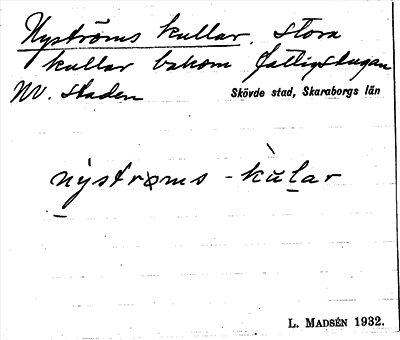 Nyströms kullar. Stora
kullar bakom fattigstugan
NV. staden
Skövde stad, Skaraborgs län
nẏstrɷms - kùlar
L. MADSÉN 1932.